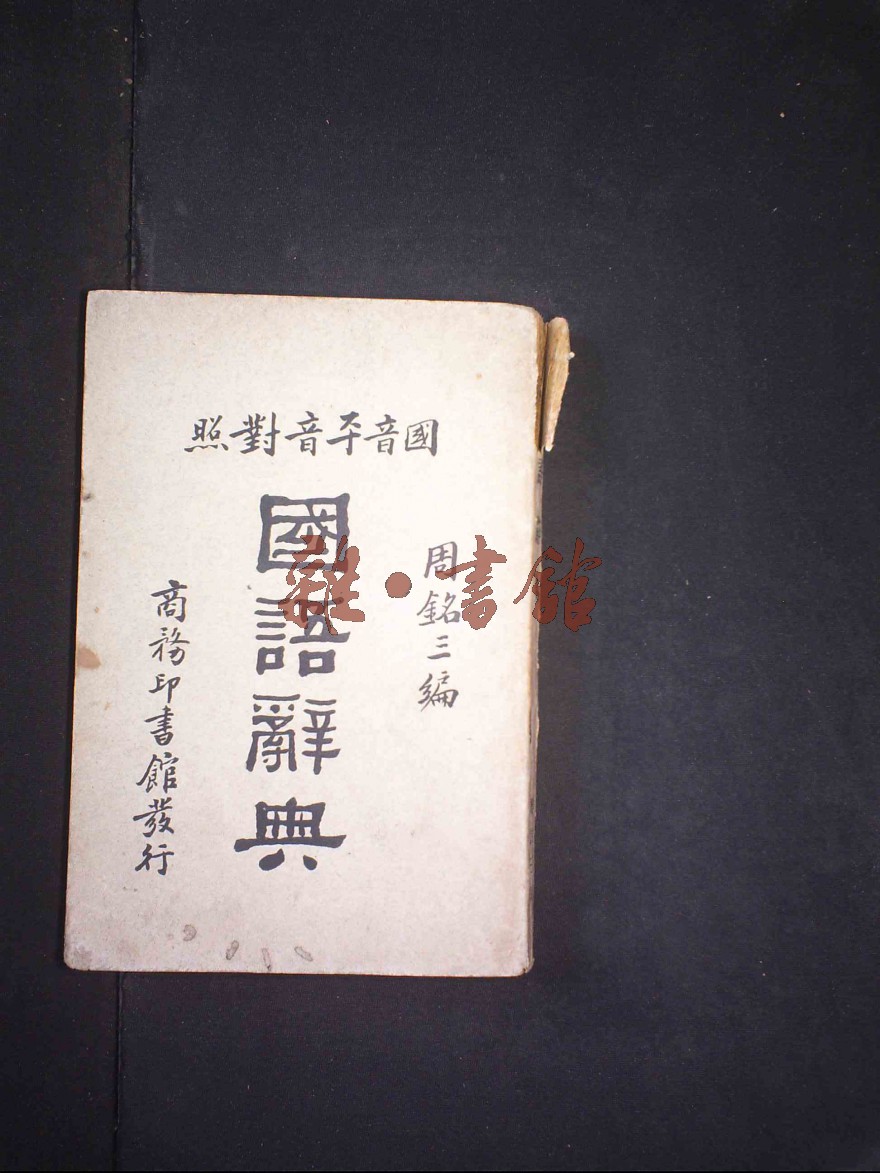 國音平音對照
周銘三編
國語辭典
商務印書館發行
雜·書館